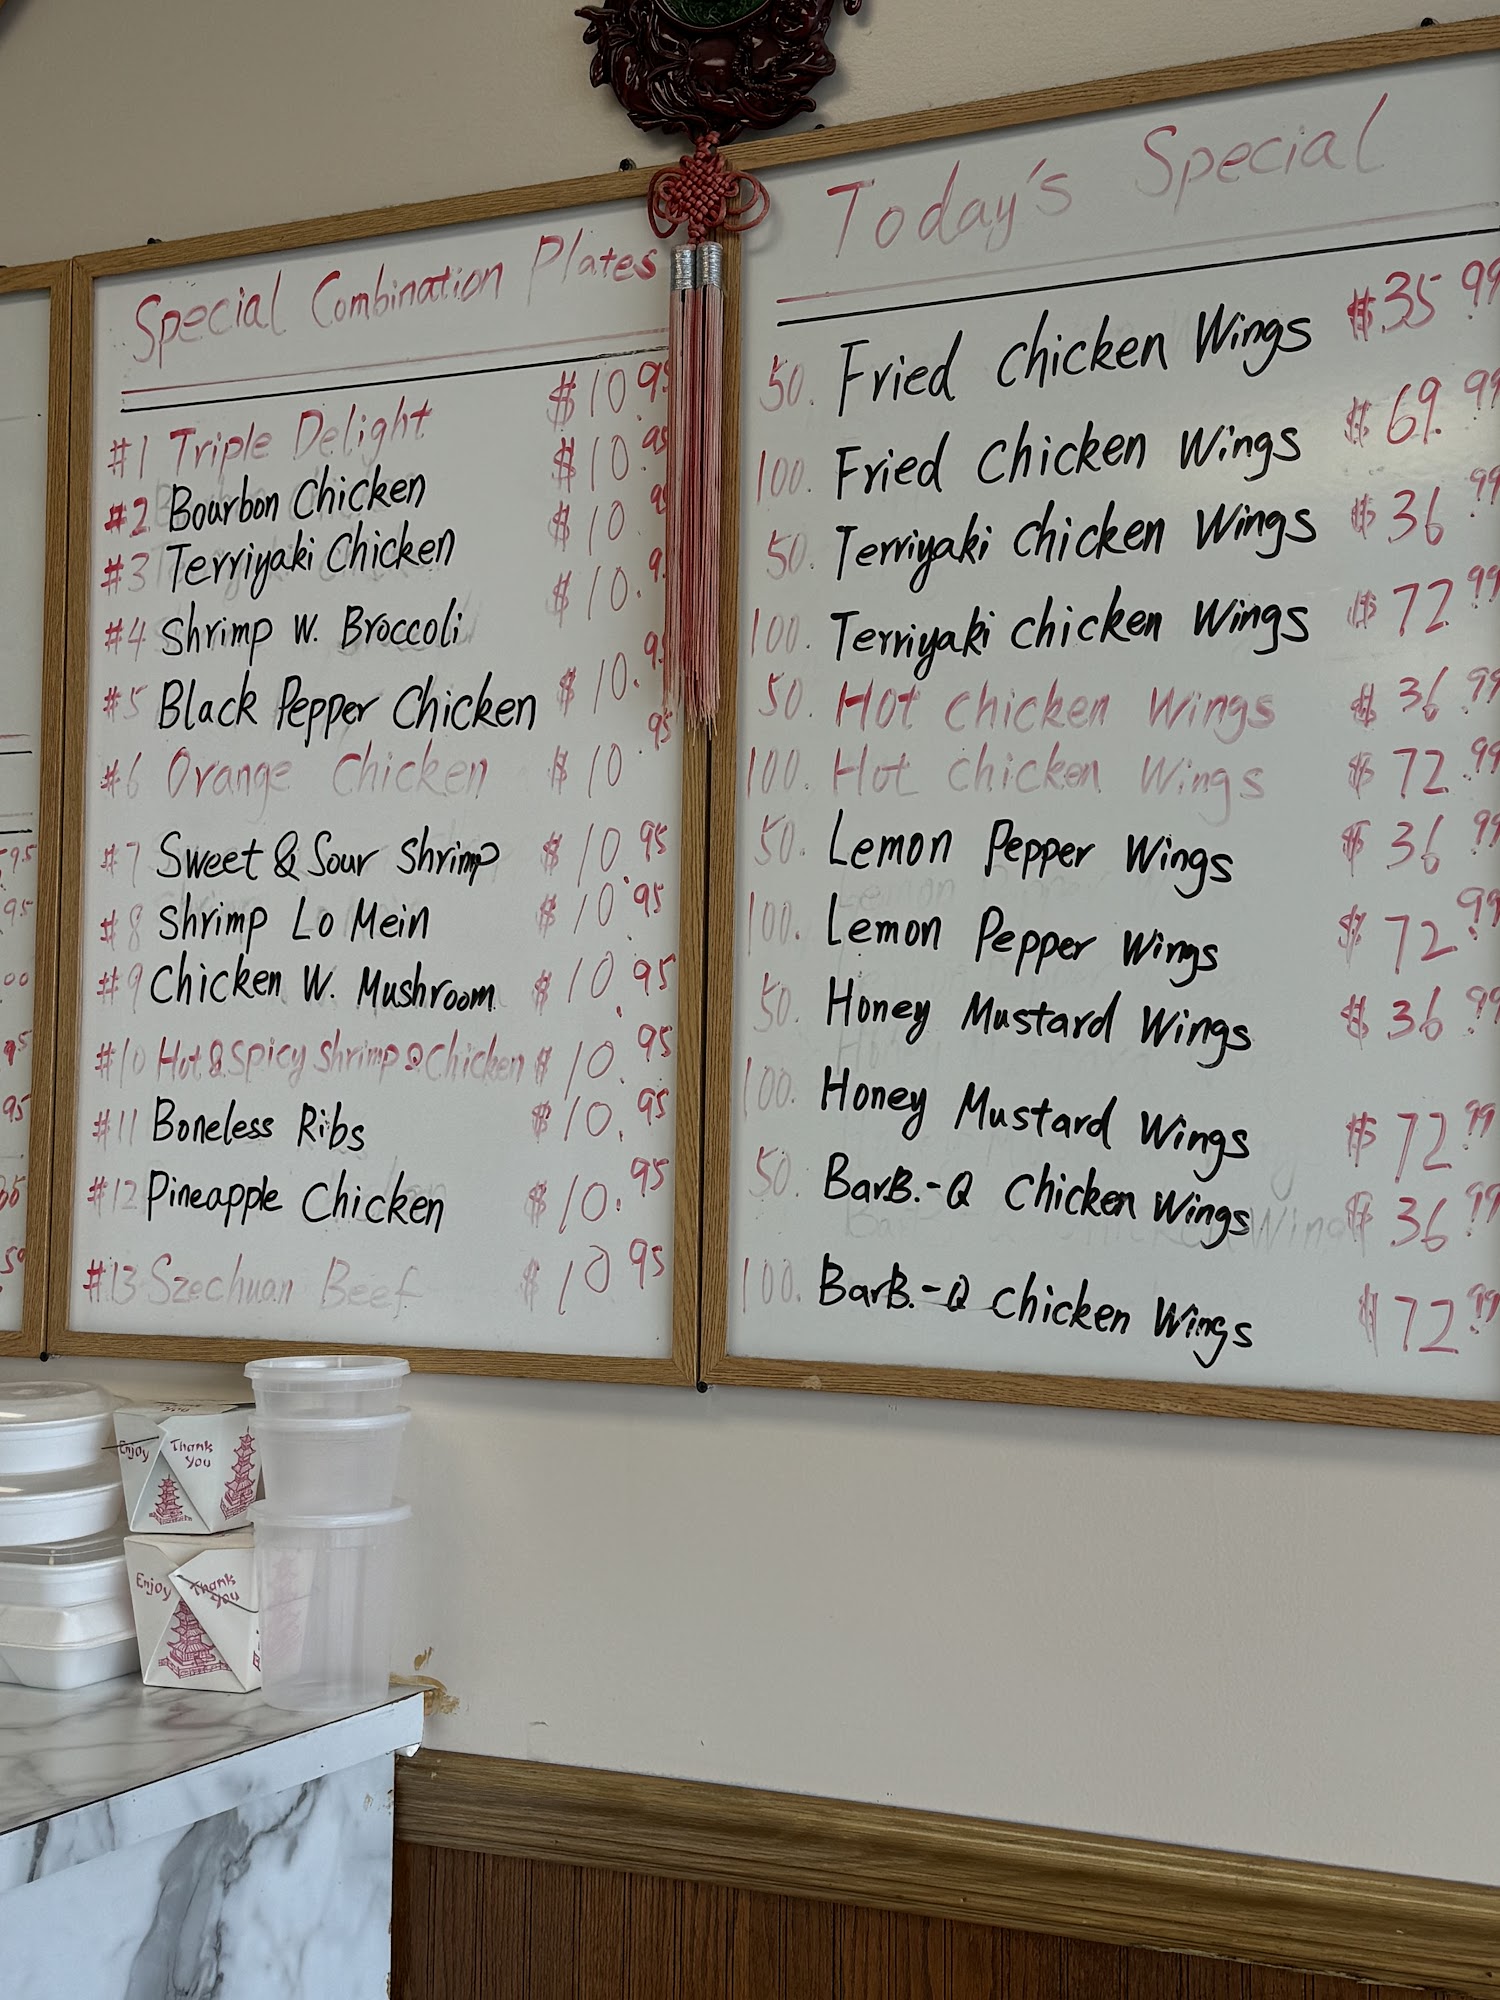 Special Combination Plates
#1 Triple Delight $10.95
#2 Bourbon Chicken $10.95
#3 Terriyaki Chicken $10.95
#4 Shrimp W. Broccoli $10.95
#5 Black Pepper Chicken $10.95
#6 Orange Chicken $10.95
#7 Sweet & Sour Shrimp $10.95
#8 Shrimp Lo Mein $10.95
#9 Chicken W. Mushroom $10.95
#10 Hot & Spicy Shrimp & Chicken $10.95
#11 Boneless Ribs $10.95
#12 Pineapple Chicken $10.95
#13 Szechuan Beef $10.95
Today's Special
50. Fried Chicken Wings $35.99
100. Fried Chicken Wings $69.99
50. Terriyaki Chicken Wings $36.99
100. Terriyaki Chicken Wings $72.99
50. Hot Chicken Wings $36.99
100. Hot Chicken Wings $72.99
50. Lemon Pepper Wings $36.99
100. Lemon Pepper Wings $72.99
50. Honey Mustard Wings $36.99
100. Honey Mustard Wings $72.99
50. BarB.-Q Chicken Wings $36.99
100. BarB.-Q Chicken Wings $72.99
Enjoy
Thank You
Enjoy
Thank You